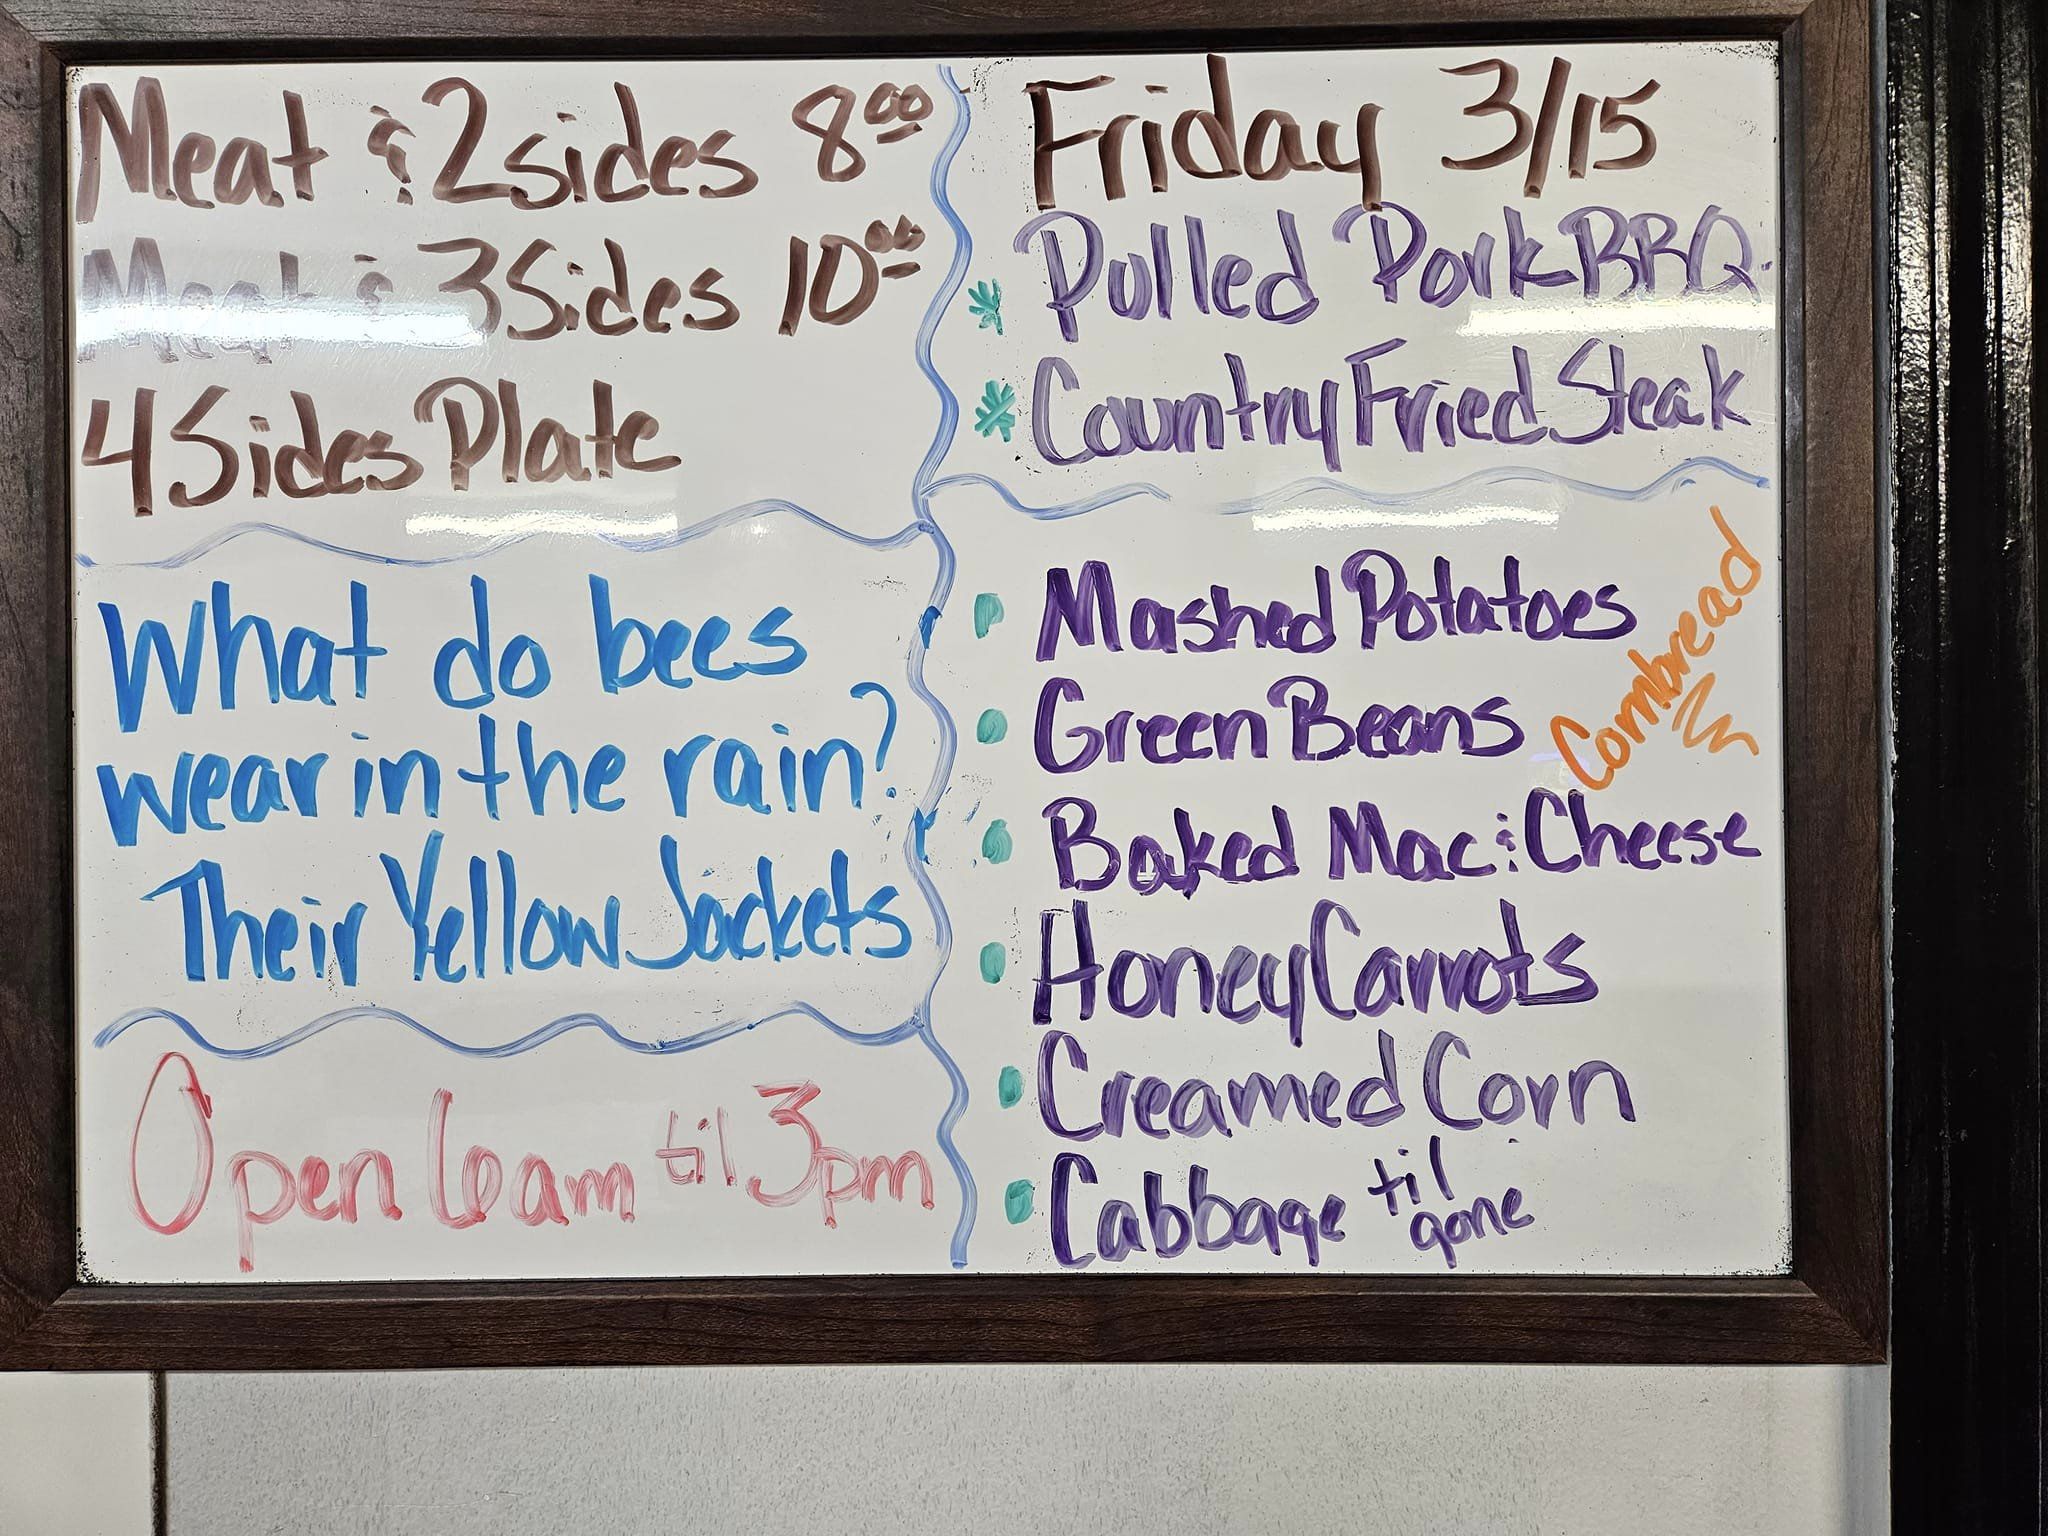 Meat & 2 sides 8⁰⁰
Meat & 3 Sides 10⁰⁰
4 Sides Plate
What do bees
wear in the rain?
Their Yellow Jackets
Open 6am til 3pm
Friday 3/15
Pulled Pork BBQ
Country Fried Steak
Mashed Potatoes
Green Beans
Cornbread
Baked Mac & Cheese
Honey Carrots
Creamed Corn
Cabbage til
gone